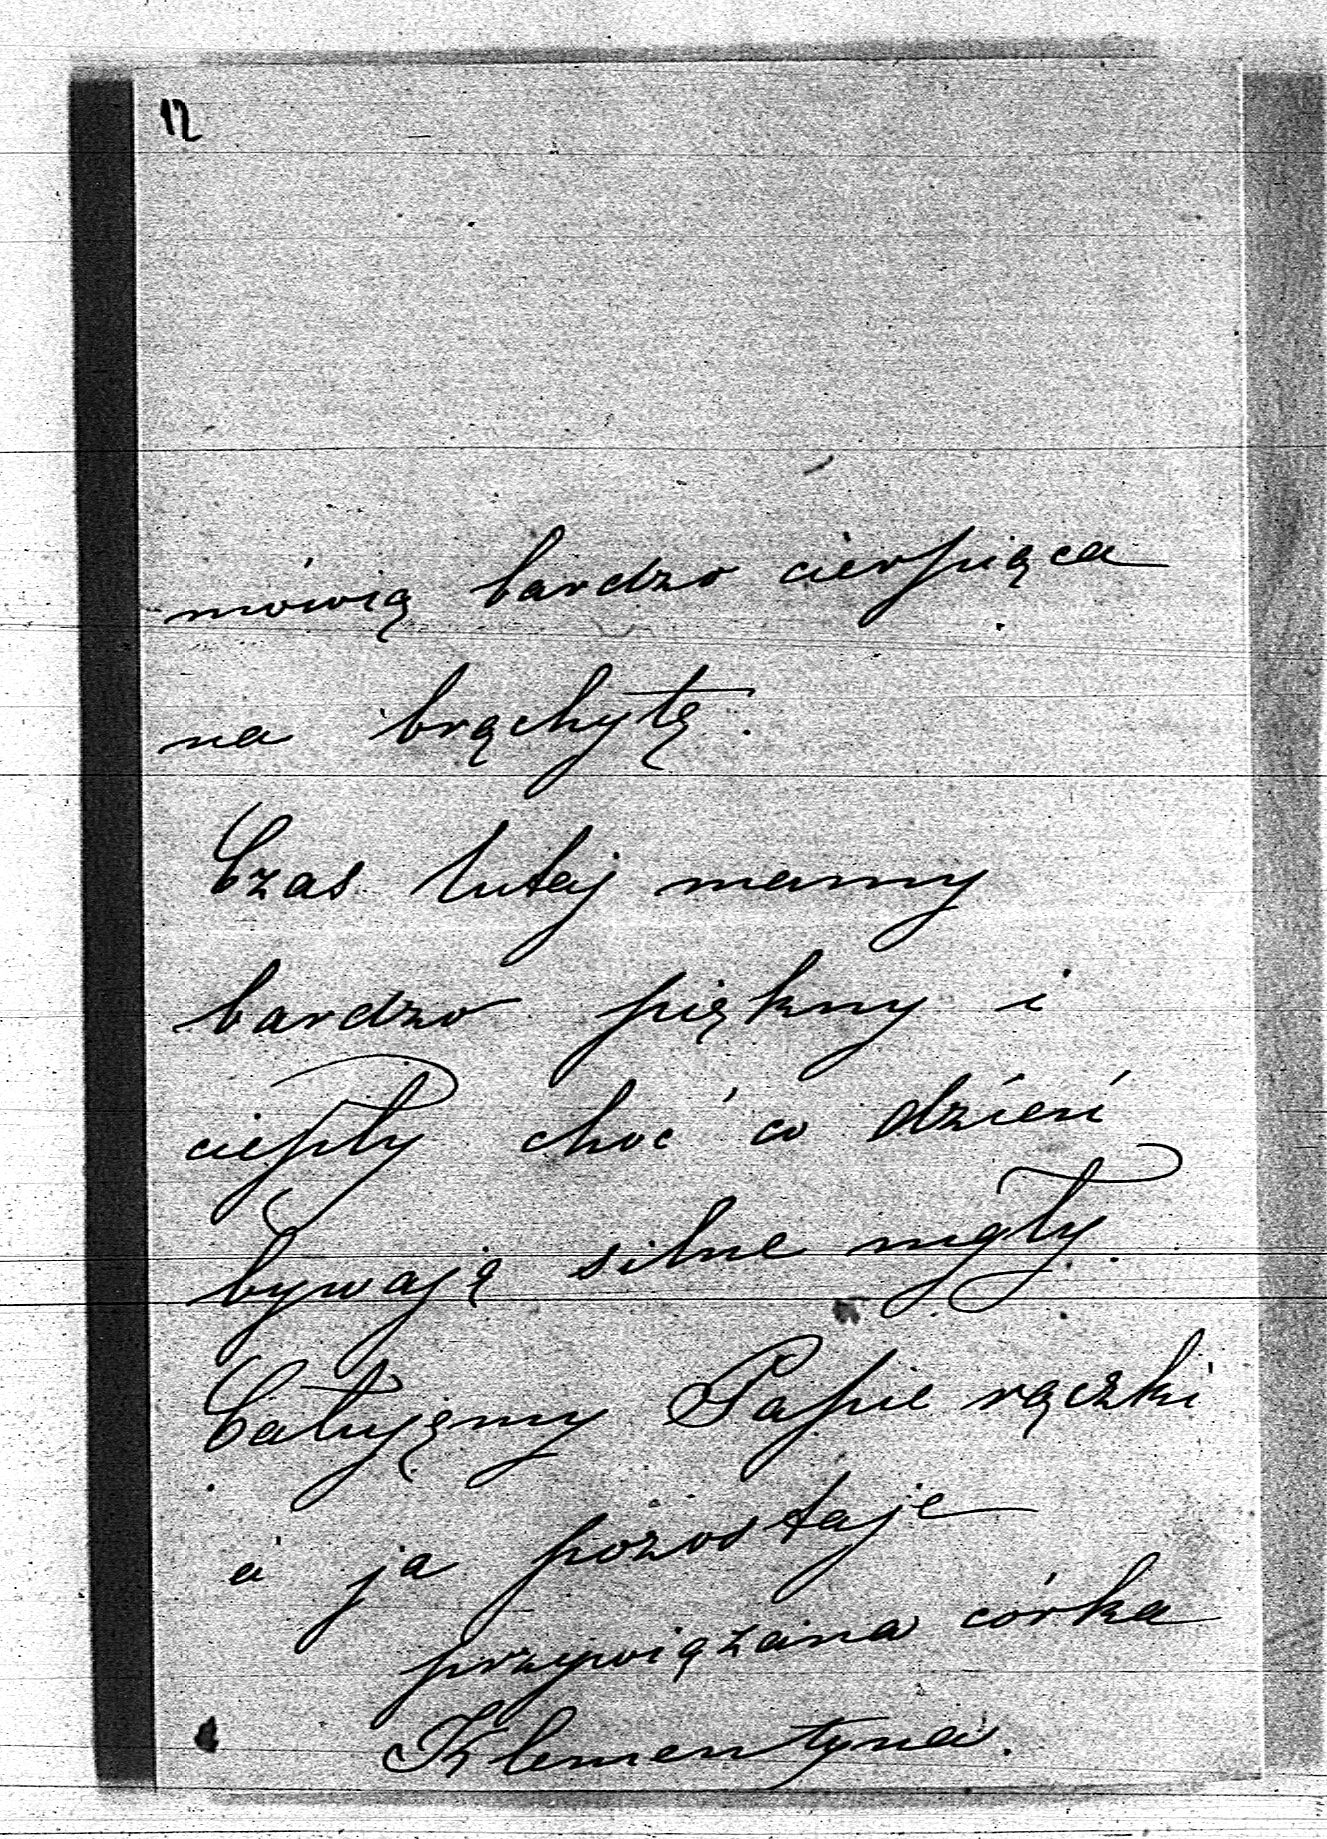 12
mówią bardzo cierpiąca
na brąchytę.
Czas tutaj mamy
bardzo piękny i
ciepły choć co dzień
bywają silne mgły.
Całujęmy Papie rączki
a ja pozostaje
przywiązana córka
Klementyna.